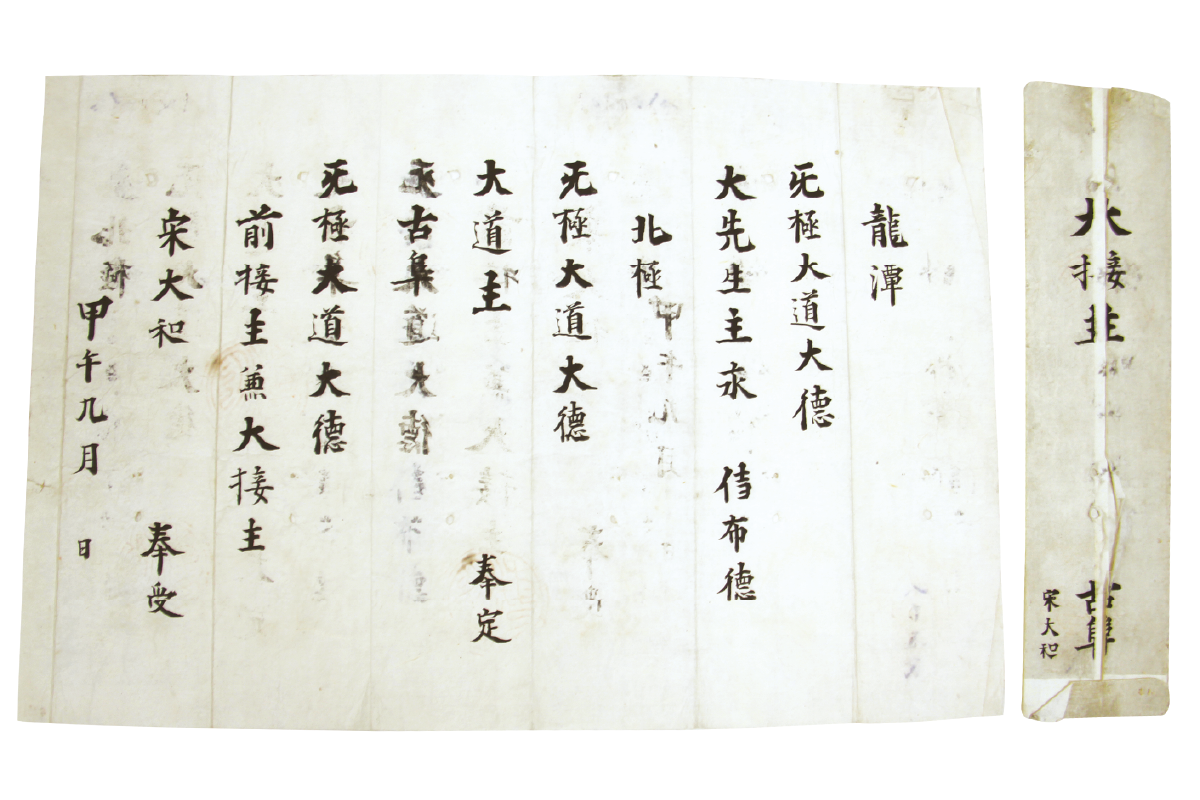 龍潭
无極大道大德
大先生主永 侍布德
北極
无極大道大德
大道主 奉定
古阜 大德
无極大道大德
前接主兼大接主
宋大和 奉受
甲午九月 日
大接主 古阜
宋大和